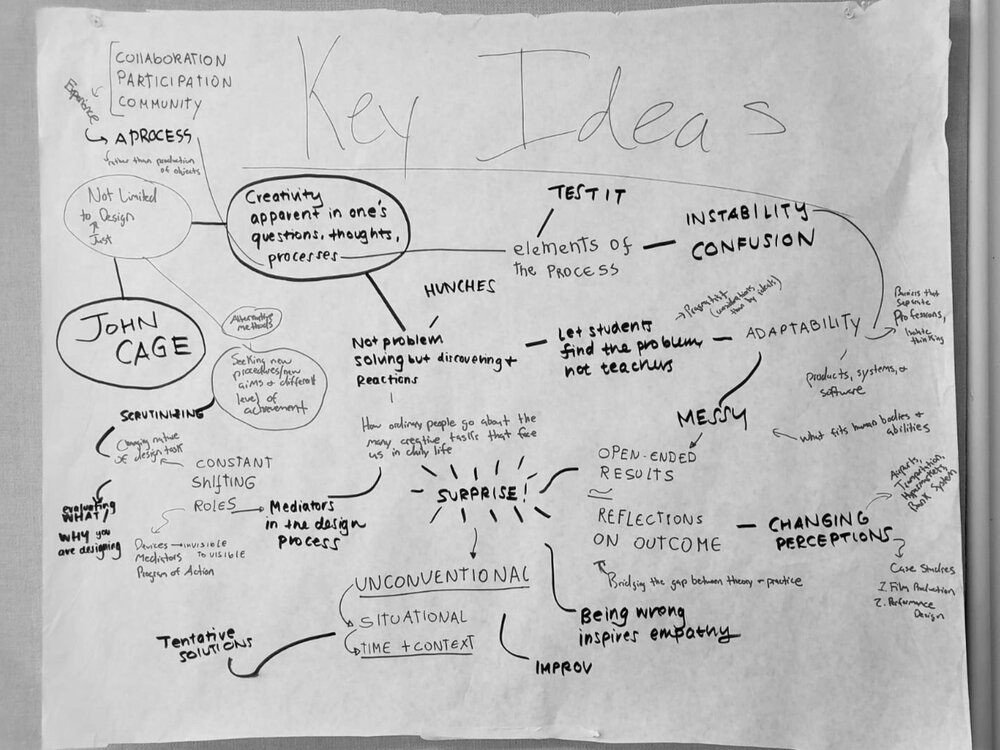 Key Ideas
COLLABORATION
PARTICIPATION
COMMUNITY
Experience
A PROCESS
rather than production
of objects
Not Limited
to Design
Just
Creativity
apparent in one's
questions, thoughts,
processes
TEST IT
elements of
the PROCESS
INSTABILITY
CONFUSION
HUNCHES
JOHN
CAGE
Alternative
methods
Seeking new
procedures/new
aims + different
level of
achievement
Not problem
solving but discovering +
Reactions
Let students
find the problem
not teachers
Pragmatist
(considerations
than by ideals)
ADAPTABILITY
Barriers that
Separate
Professions,
Isolate
thinking
products, systems, +
software
what fits human bodies +
abilities
MESSY
SCRUTINIZING
Changing nature
of design task
evaluating
WHAT/
WHY you
are designing
CONSTANT
Shifting
ROLES
Devices invisible
Mediators to visible
Program of Action
Mediators
in the design
process
How ordinary people go about the
many creative tasks that face
us in daily life
SURPRISE!
OPEN-ENDED
RESULTS
REFLECTIONS
ON OUTCOME
CHANGING
PERCEPTIONS
Airports,
Transportation,
Hypermarkets,
Bank System
Case Studies
1. Film Production
2. Performance
Design
Bridging the gap between theory + practice
UNCONVENTIONAL
SITUATIONAL
TIME + CONTEXT
Tentative
SOLUTIONS
Being wrong
inspires empathy
IMPROV